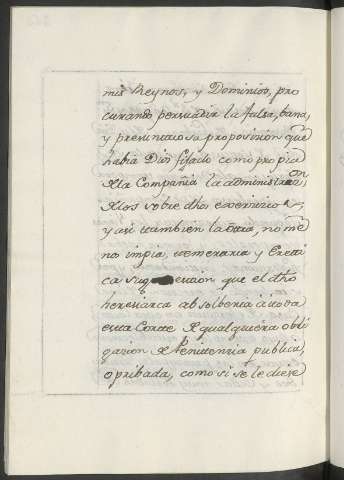 mis Reynos, y Dominios, pro
curando persuadir la falsa, bana,
y presuntuosa proposision que
habia Dios fijado como propia
de la Compañia la administraon
de los sobre dho exersisios
y asi tambien la otra, no me
nos impia, temeraria y Ereti
ca sugestion que el dho
heresiarca absolberia á toda
esta Corte de qualquiera obli
gazion de Penitenzia publica,
o pribada, como si se le diese